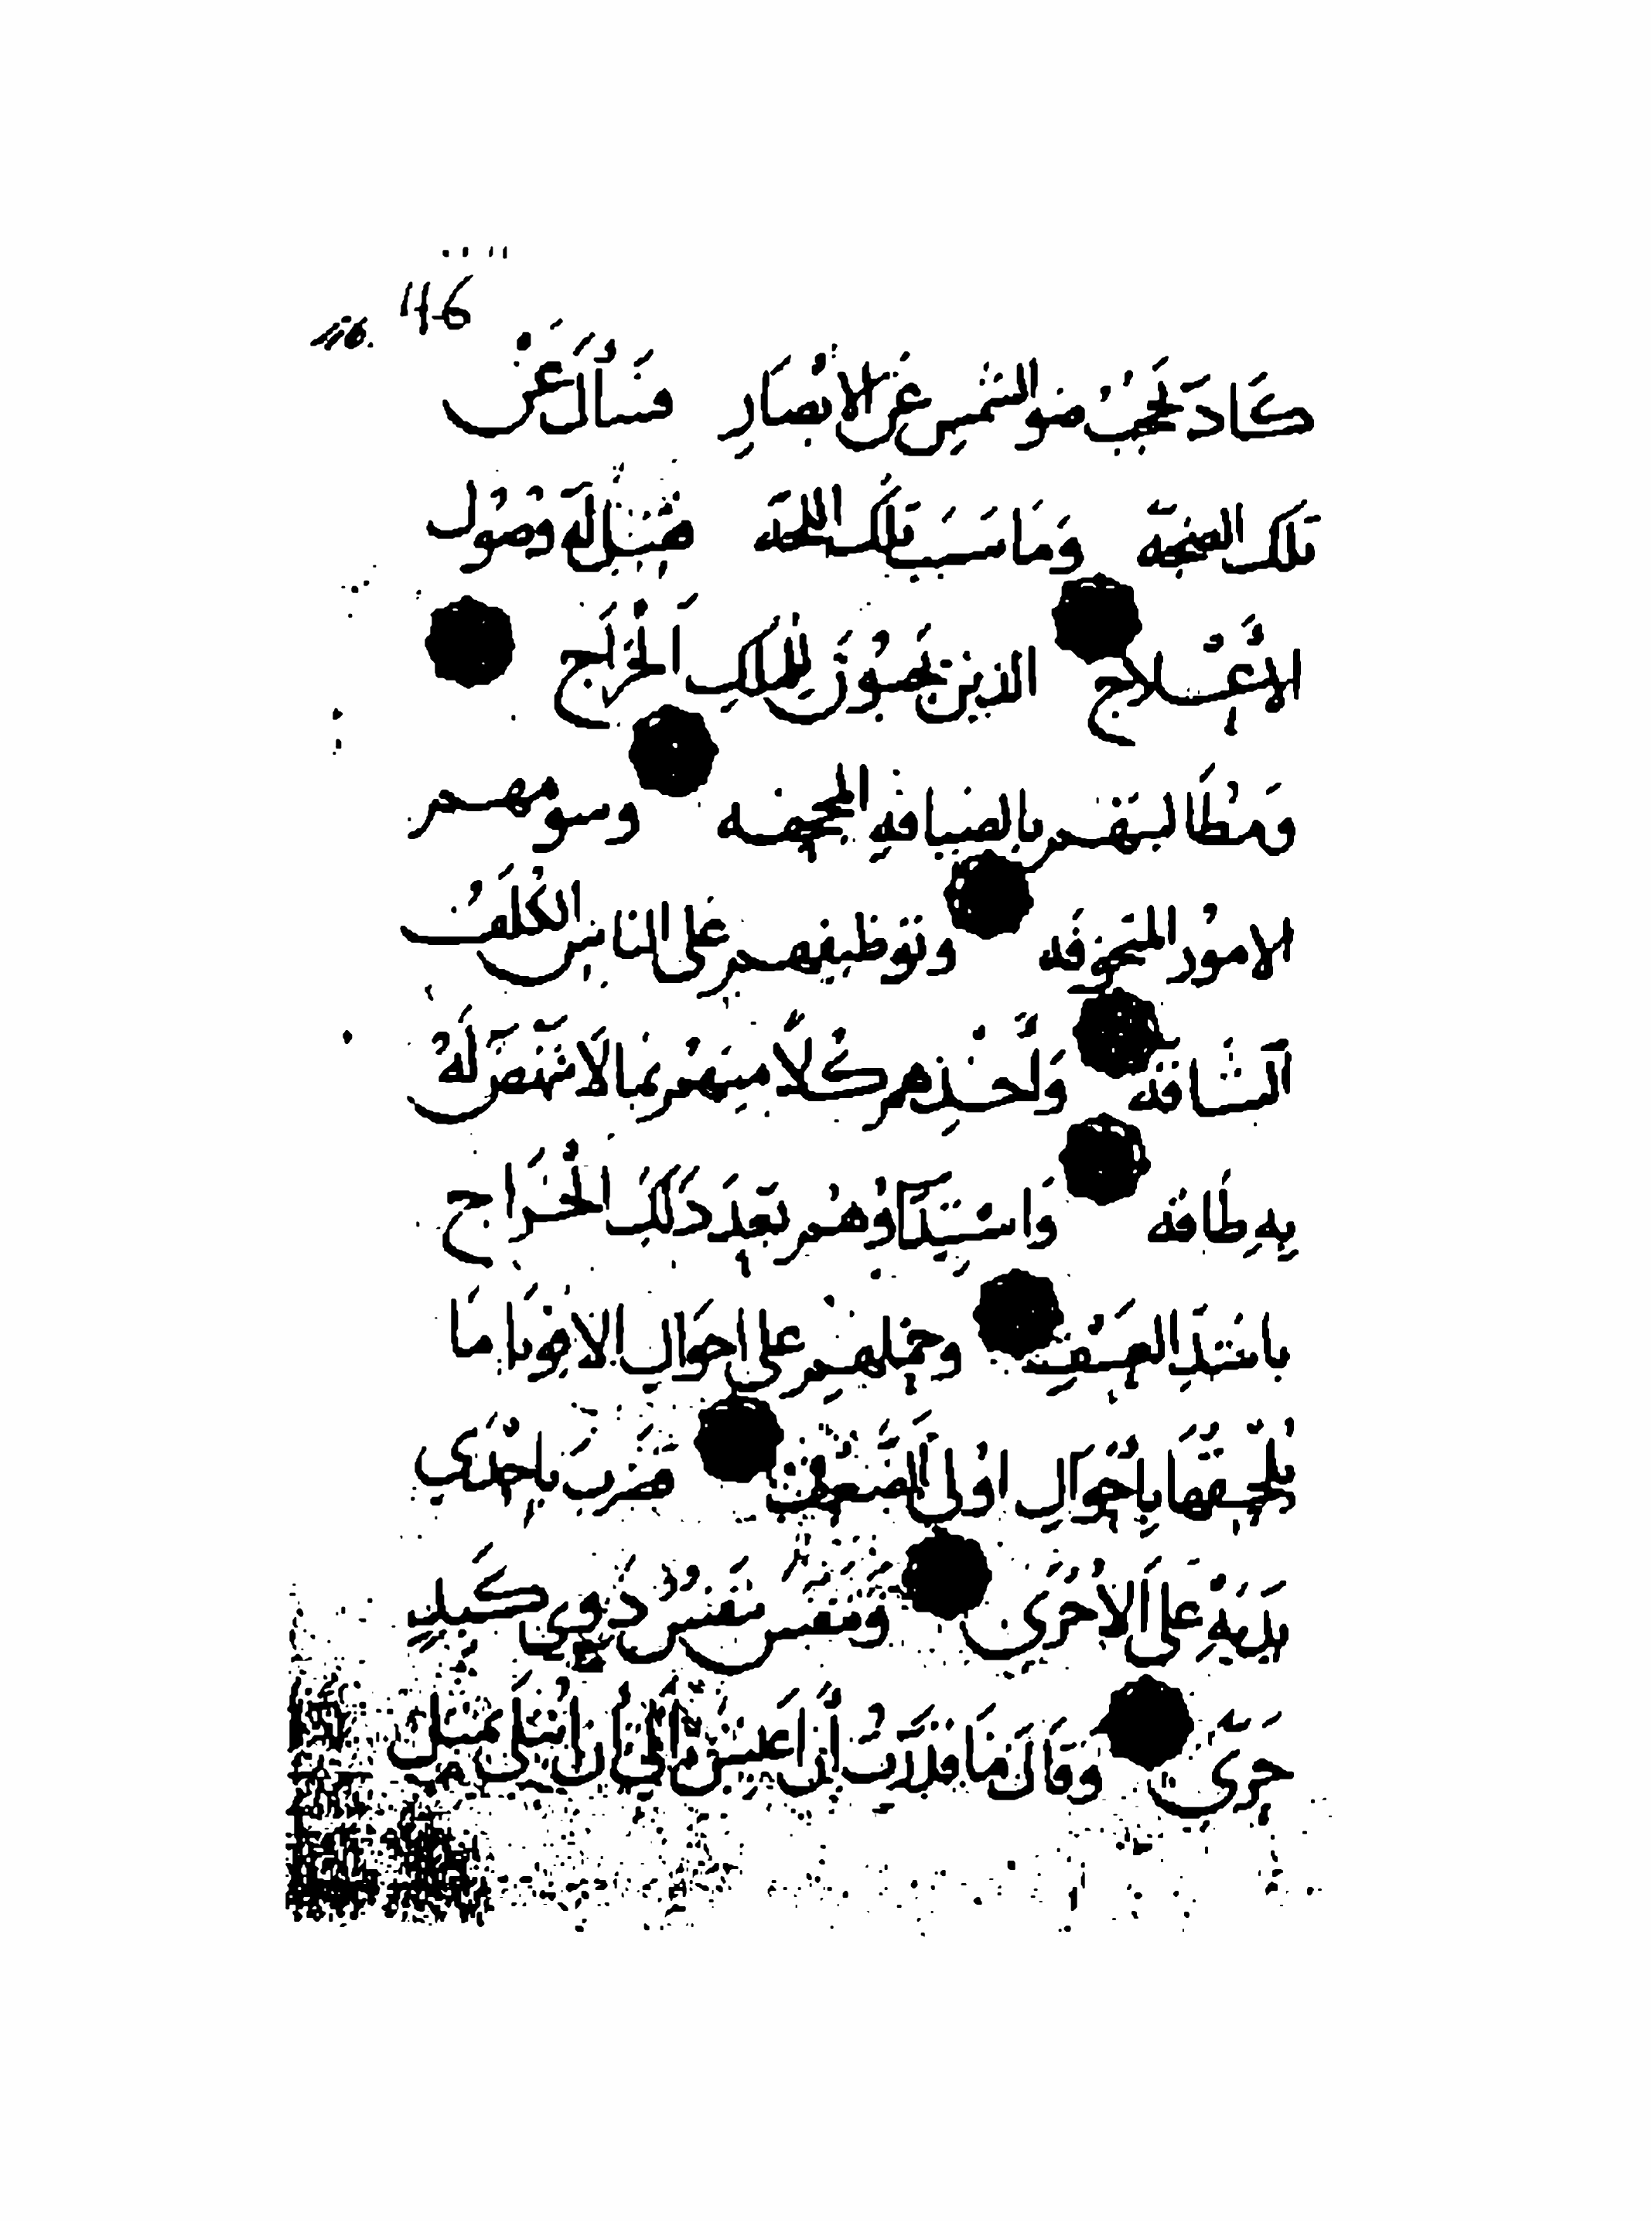 116. 46
كَادَ يَحجبُ ضو الشمسِ عَن الابْصَارِ فسَأَلَ عَنْ
تلكَ الضجّه وَمَا سَبَب تلكَ اللجه فقيلَ لهَ وصُول
الاعْلاج الذين يجبُونَ للملكِ الخْرَاج
وَمُطَالبتهم بالضيافهِ المجحفه وسومهم
الامُور المتخوفَه وتوظيفهم عَلى الناس الكُلَفَ
الشاقه وَاخْذِهم كُلًا منهمْ بمَا لَا تنْهَض لَهُ
بهِ طَاقه وَاستيداوُهم بَعدَ ذلكَ الْخَراج
باشدِ العنْفِ وحَمْلهم على احوَال الاقويا مَا
يُلْحقهَا بِاحْوَالِ اوُلى الضعْف فضرَبَ باحْدَي
يدَيْهِ عَلى الاُخْرَى وتنفسَ تنفسُ ذَوِي كَبدٍ
حَرَّى وَقالَ مَا قدَّرتُ أنْ اعَيش الَى أن اُبتلَى بمثل